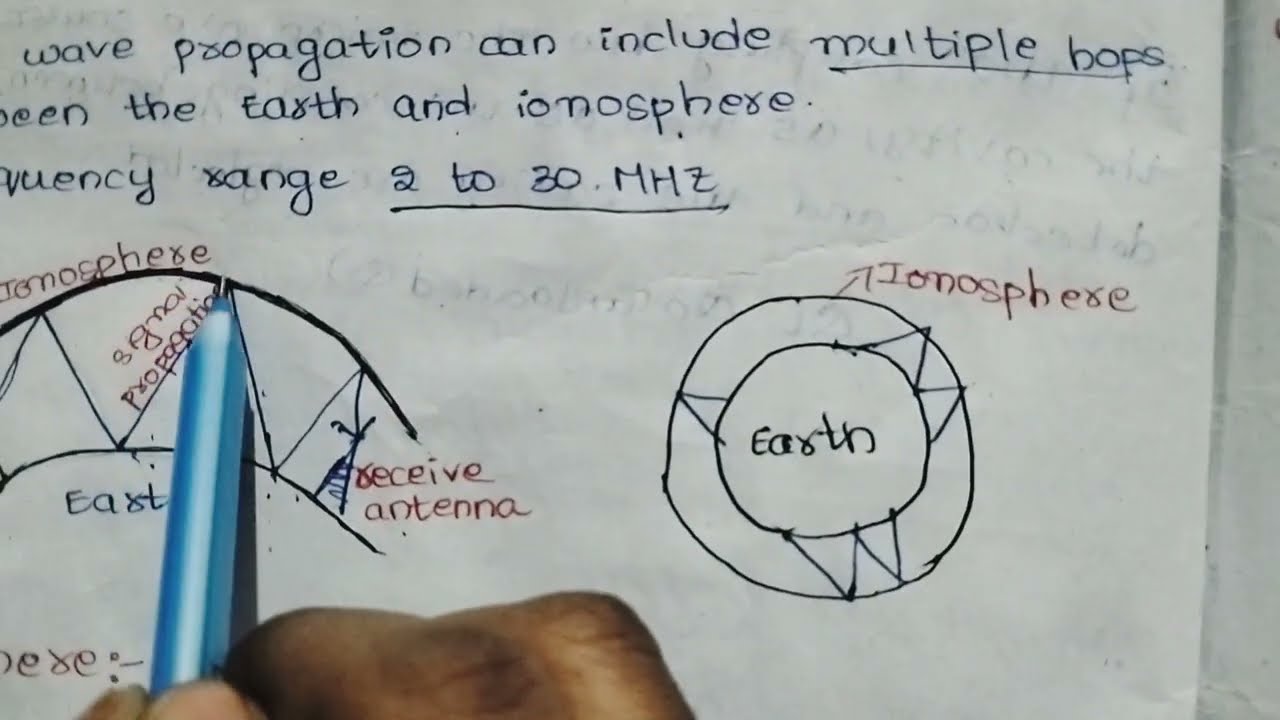 wave propagation can include multiple hops
een the Earth and ionosphere.
quency range 2 to 30 MHZ
Ionosphere
signal
propagation
Eart
receive
antenna
Ionosphere
Earth
ere:-